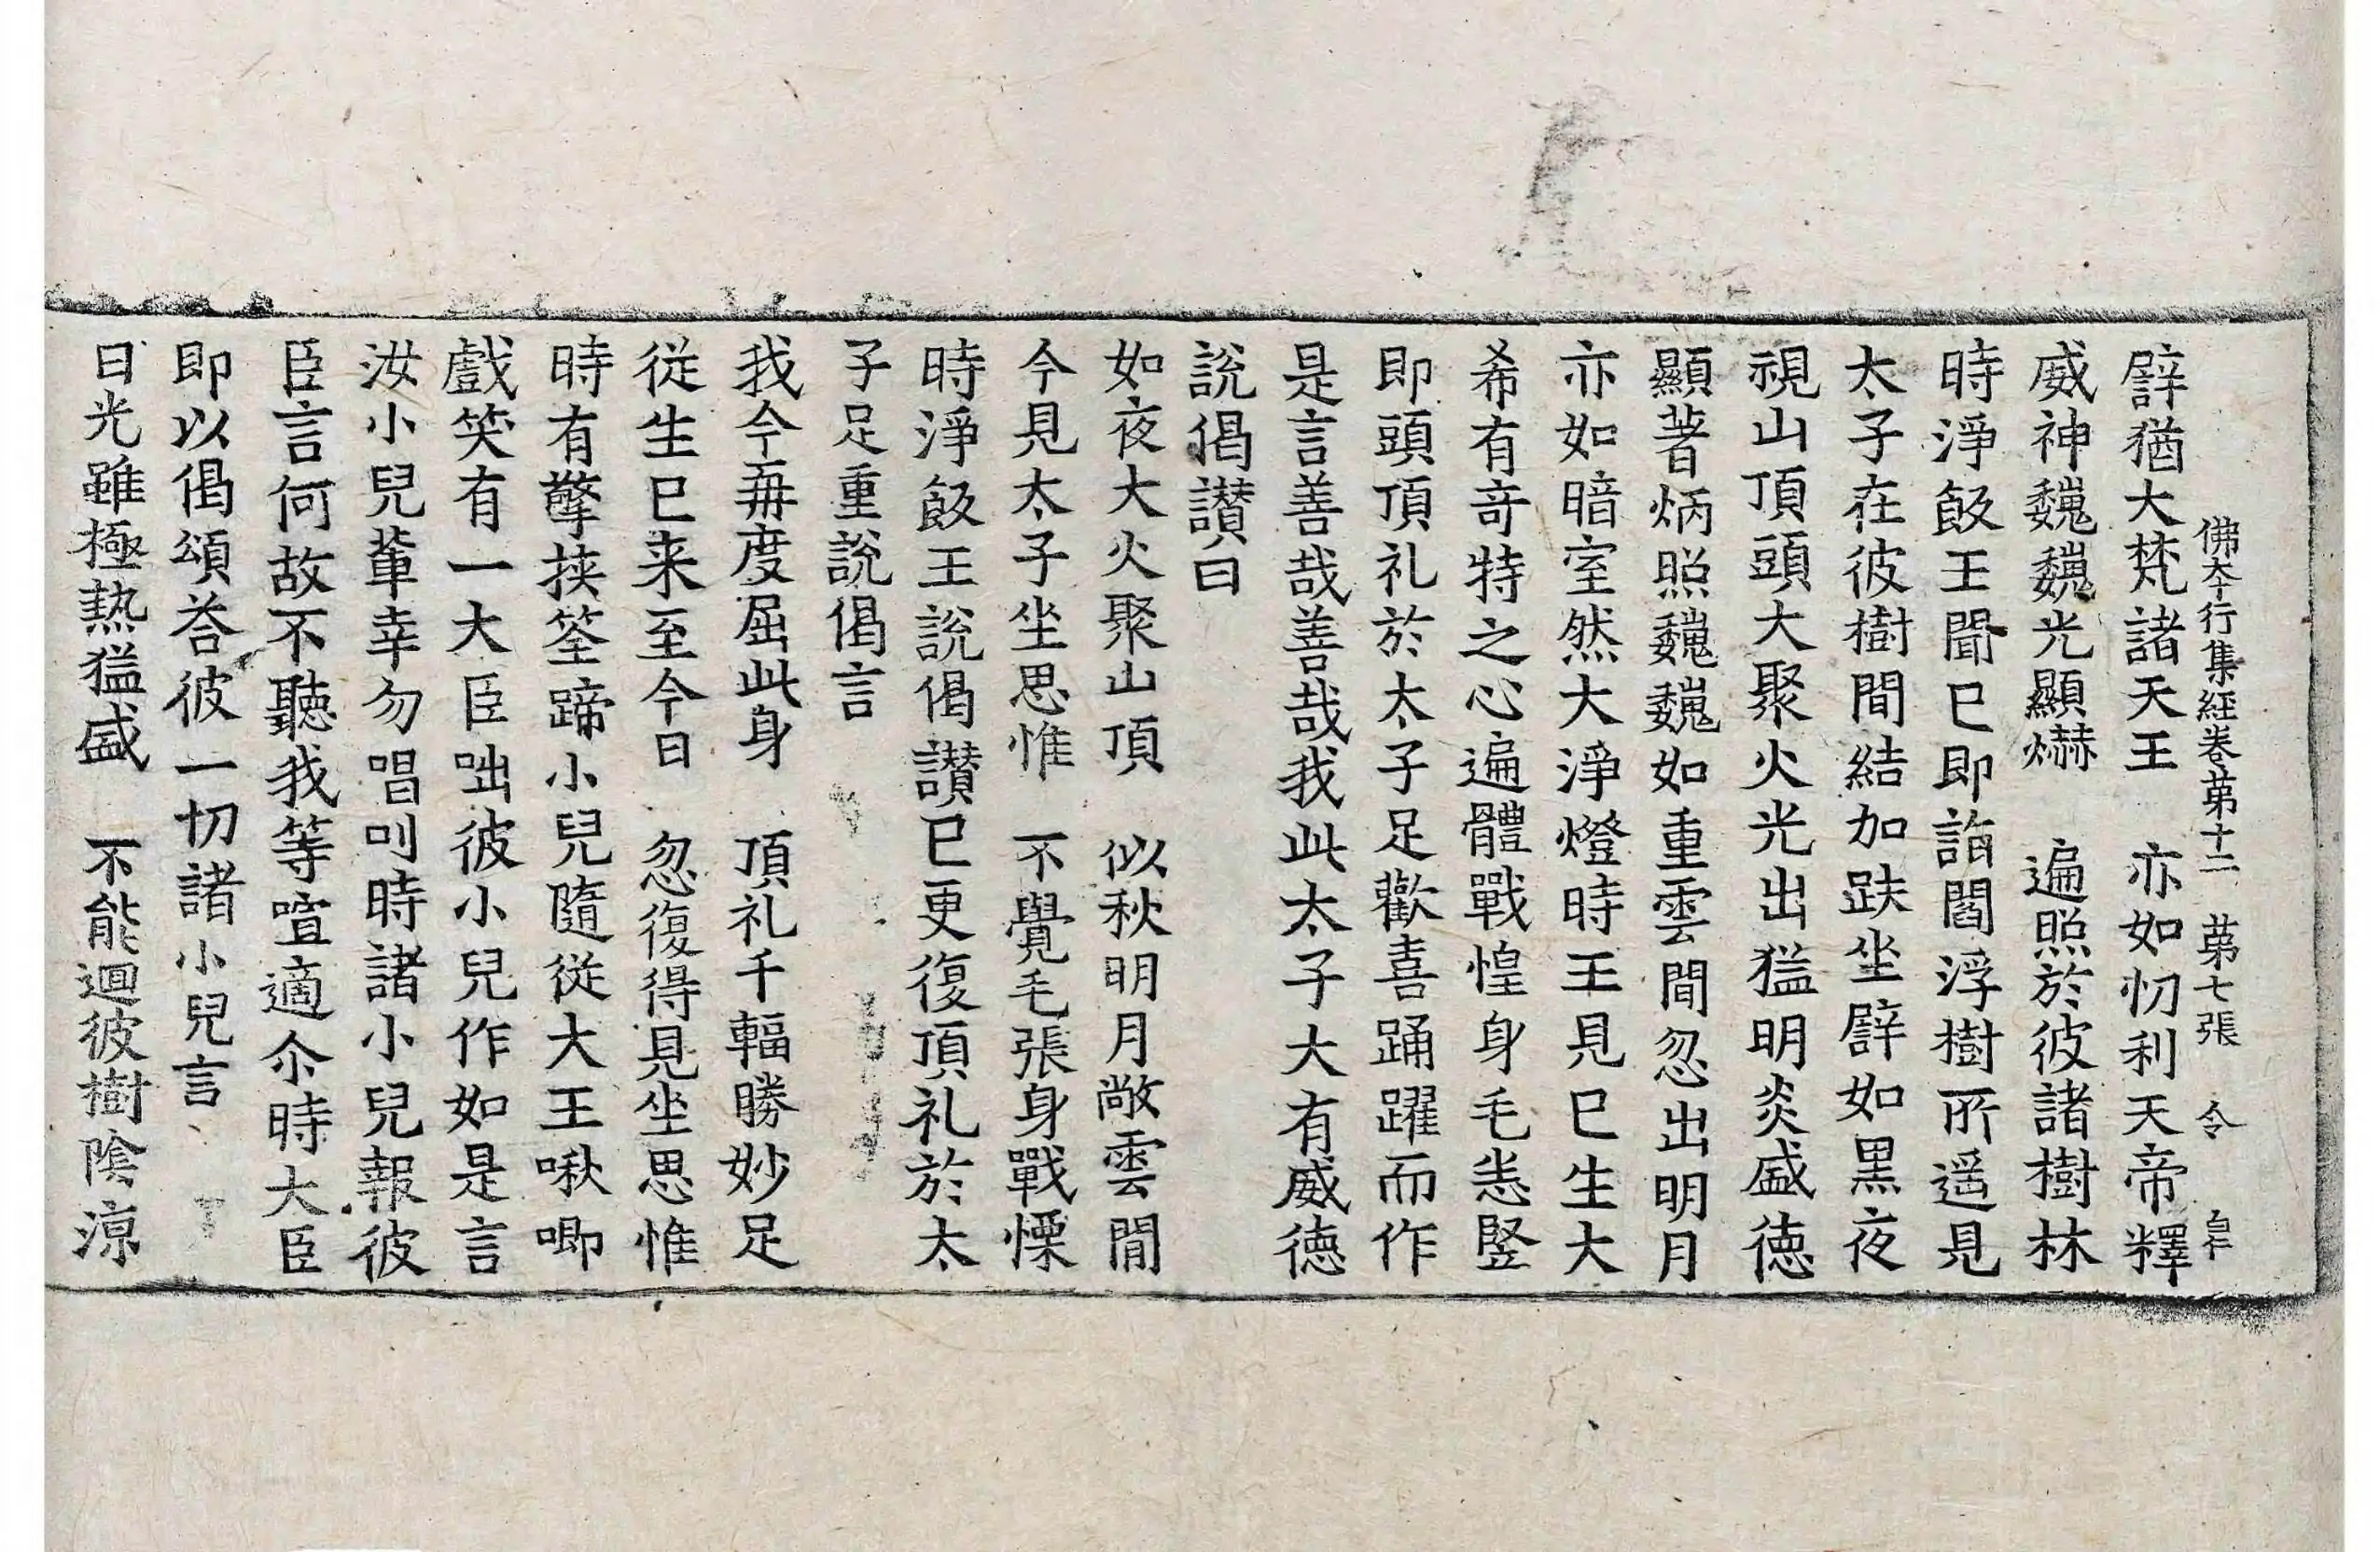 佛夲行集経卷苐十二　苐七張　令　自仁
譬猶大梵諸天王　亦如忉利天帝釋
威神巍巍光顯爀　遍照於彼諸樹林
時淨飯王聞已即詣閻浮樹所遥見
太子在彼樹間結加趺坐譬如黒夜
視山頂頭大聚火光出猛明炎盛徳
顯著炳照巍巍如重雲間忽出明月
亦如暗室然大淨燈時王見已生大
希有竒特之心遍體戰惶身毛恚竪
即頭頂礼於太子足歡喜踊躍而作
是言善哉善哉我此太子大有威徳
說偈讃曰
如夜大火聚山頂　似秋明月敞雲間
今見太子坐思惟　不覺毛張身戰慄
時淨飯王說偈讃已更復頂礼於太
子足重說偈言
我今再度屈此身　頂礼千輻勝妙足
従生已来至今日　忽復得見坐思惟
時有擎挾筌蹄小兒隨従大王啾唧
戲笑有一大臣咄彼小兒作如是言
汝小兒軰幸勿唱叫時諸小兒報彼
臣言何故不聽我等喧適尒時大臣
即以偈頌荅彼一切諸小兒言
日光雖極熱猛盛　不能迴彼樹陰涼